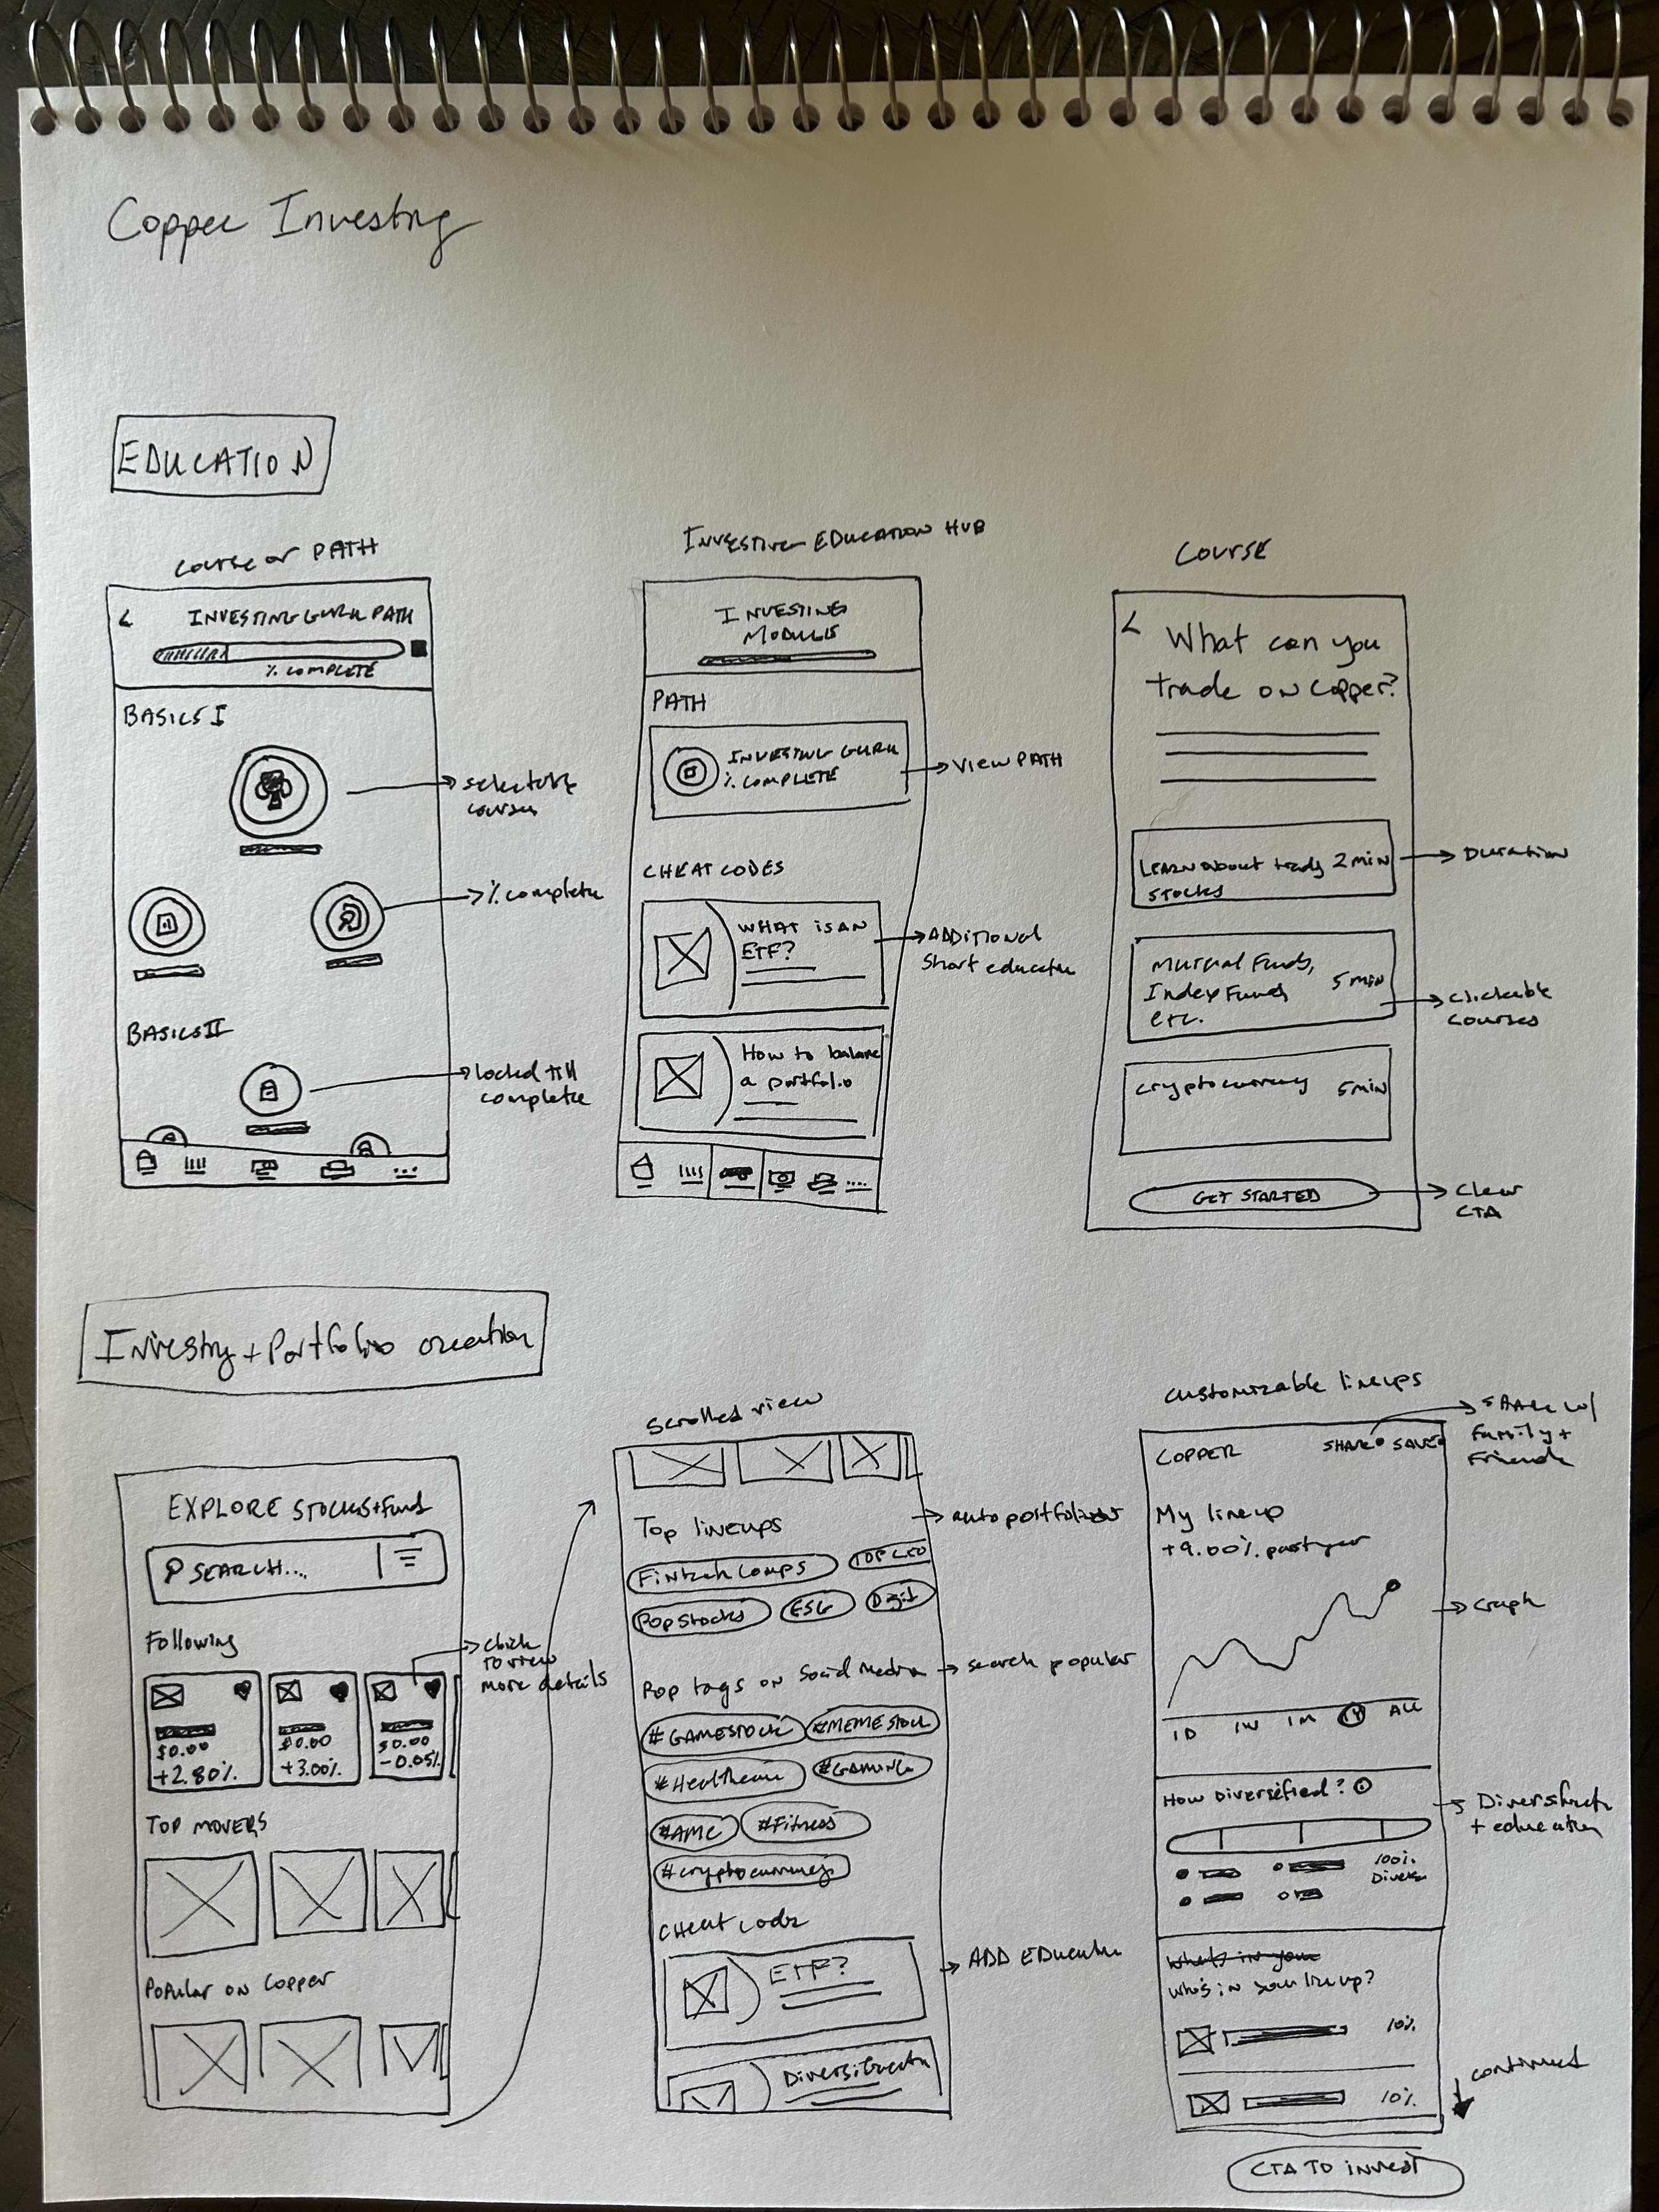 Copper Investing
EDUCATION
COURSE or PATH
< INVESTING GURU PATH
% COMPLETE
BASICS I
selectable
courses
% complete
BASICS II
locked till
complete
INVESTING EDUCATION HUB
INVESTING
MODULE
PATH
INVESTING GURU
% COMPLETE
VIEW PATH
CHEAT CODES
WHAT IS AN
ETF?
ADDITIONAL
Short education
How to balance
a portfolio
COURSE
< What can you
trade on Copper?
LEARN about trading 2 min
stocks
Duration
Mutual Funds,
Index Funds 5 min
etc.
clickable
courses
cryptocurrency 5 min
GET STARTED
Clear
CTA
Investing + Portfolio creation
EXPLORE STOCKS + Funds
SEARCH....
Following
click
to view
more details
$0.00
+2.80%
$0.00
+3.00%
$0.00
-0.05%
TOP MOVERS
Popular on Copper
scrolled view
Top lineups
auto portfolios
Fintech Comps
TOP CEO
Pop Stocks
ESG
Digit
Pop tags on Social Media
search popular
#GAMESTOCK
#MEMESTOCK
#Healthcare
#GAMING
#AMC
#Fitness
#cryptocurrency
Cheat Codes
ETF?
ADD Education
Diversification
customizable lineups
COPPER
SHARE
SAVE
SHARE w/
Family +
Friends
My lineup
+9.00% past year
Graph
1D 1W 1M 1Y ALL
How Diversified?
Diversification
+ education
100%
Divers
What's in your
who's in your lineup?
10%
10%
continued
CTA TO invest